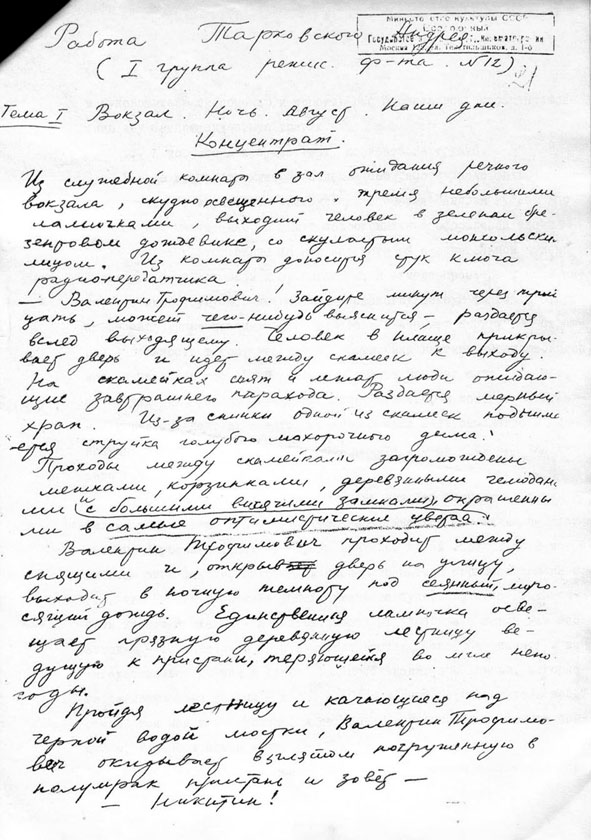 Министерство культуры СССР
Работа Тарковского Андрея.
(I группа режис. ф-та. №12)
Тема I Вокзал. Ночь. Август. Наши дни.
Концентрат.
Из служебной комнаты в зал ожидания речного
вокзала, скудно освещенного тремя небольшими
лампочками, выходит человек в зеленом бре-
зентовом дождевике, со скуластым монгольским
лицом. Из комнаты доносится стук ключа
радиопередатчика.
— Валентин Трофимович! Зайдите минут через трид
цать, может чего-нибудь выяснится — раздается
вслед выходящему. Человек в плаще прикры-
вает дверь и идет между скамеек к выходу.
На скамейках спят и лежат люди ожидаю-
щие завтрашнего парохода. Раздается мерный
храп. Из-за спинки одной из скамеек подыма
ется струйка голубого махорочного дыма.
Проходы между скамейками загромождены
мешками, корзинками, деревянными чемодана
ми и (с большими висячими замками), окрашенны
ми в самые оптимистические цвета.
Валентин Трофимович проходит между
спящими и, открыв дверь на улицу,
выходит в ночную темноту под сеянный, моро-
сящий дождь. Единственная лампочка осве-
щает грязную деревянную лестницу ве-
дущую к пристани, теряющейся во мгле непо
годы.
Пройдя лестницу и качающиеся над
черной водой мостки, Валентин Трофимо-
вич окидывает взглядом погруженную в
полумрак пристань и зовёт —
— Никитин!